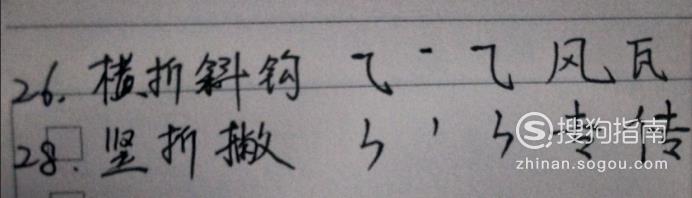 26. 横折斜钩 ⺄ - ⺄ 风瓦
28. 坚折撇 ㄣ ' ㄣ 专传
搜狗指南
zhinan.sogou.com